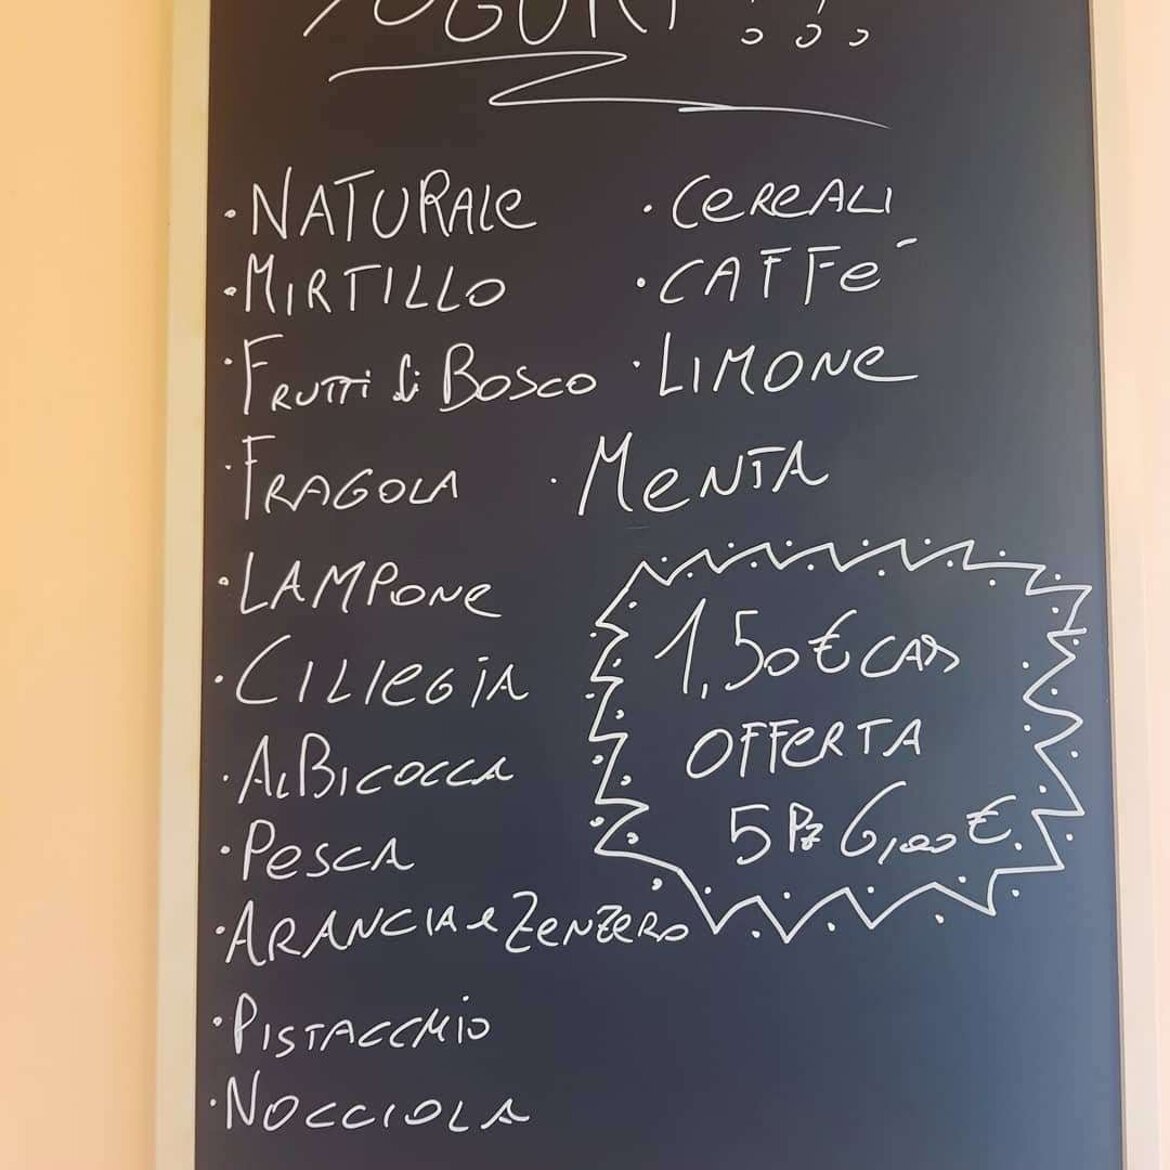 YOGURT !!!
• NATURALE
• MIRTILLO
• FRUTTI di BOSCO
• FRAGOLA
• LAMPONE
• CILIEGIA
• ALBICOCCA
• PESCA
• ARANCIA e ZENZERO
• PISTACCHIO
• NOCCIOLA
• CEREALI
• CAFFE'
• LIMONE
• MENTA
1,50 € CAD
OFFERTA
5 Pz 6,00 €.